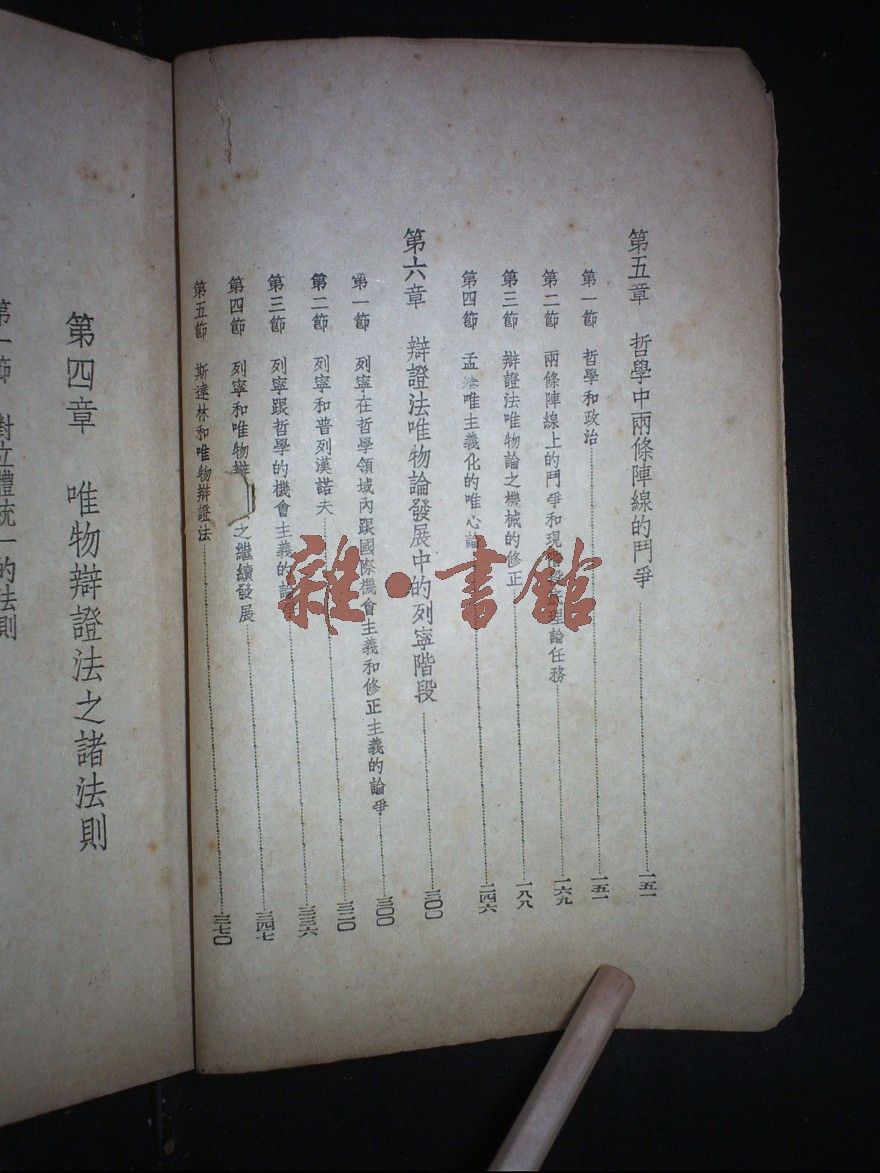 第五章 哲學中兩條陣線的鬥爭……一五一
第一節 哲學和政治……一五一
第二節 兩條陣線上的鬥爭和現階段底理論任務……一六九
第三節 辯證法唯物論之機械的修正……一八八
第四節 孟 唯主義化的唯心論……二四六
第六章 辯證法唯物論發展中的列寧階段……三〇〇
第一節 列寧在哲學領域內跟國際機會主義和修正主義的論爭……三〇〇
第二節 列寧和普列漢諾夫……三二〇
第三節 列寧跟哲學的機會主義的論爭……三三六
第四節 列寧和唯物辯 之繼續發展……三四七
第五節 斯達林和唯物辯證法……三七〇
第四章 唯物辯證法之諸法則
第一節 對立體統一的法則
雜·書館